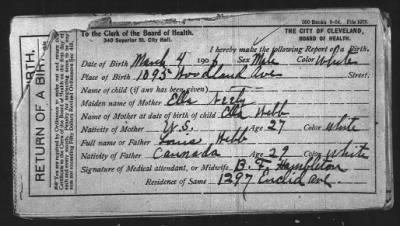 500 Books 9-04.
To the Clerk of the Board of Health.
THE CITY OF CLEVELAND,
340 Superior St. City Hall.
BOARD OF HEALTH.
I hereby make the following Report of a Birth.
Date of Birth March 4 190 Sex Male Color White
Place of Birth 1095 Woodland Ave Street.
Name of child (if any has been given)
Maiden name of Mother Ella
Name of Mother at date of birth of child Ella Webb
Nativity of Mother U.S. Age 27 Color White
Full name of Father Louis Webb
Nativity of Father Cannada Age 29 Color White
Signature of Medical attendant, or Midwife B. F. Hambleton
Residence of Same 1297 Euclid ave.
RETURN OF A BIRTH.